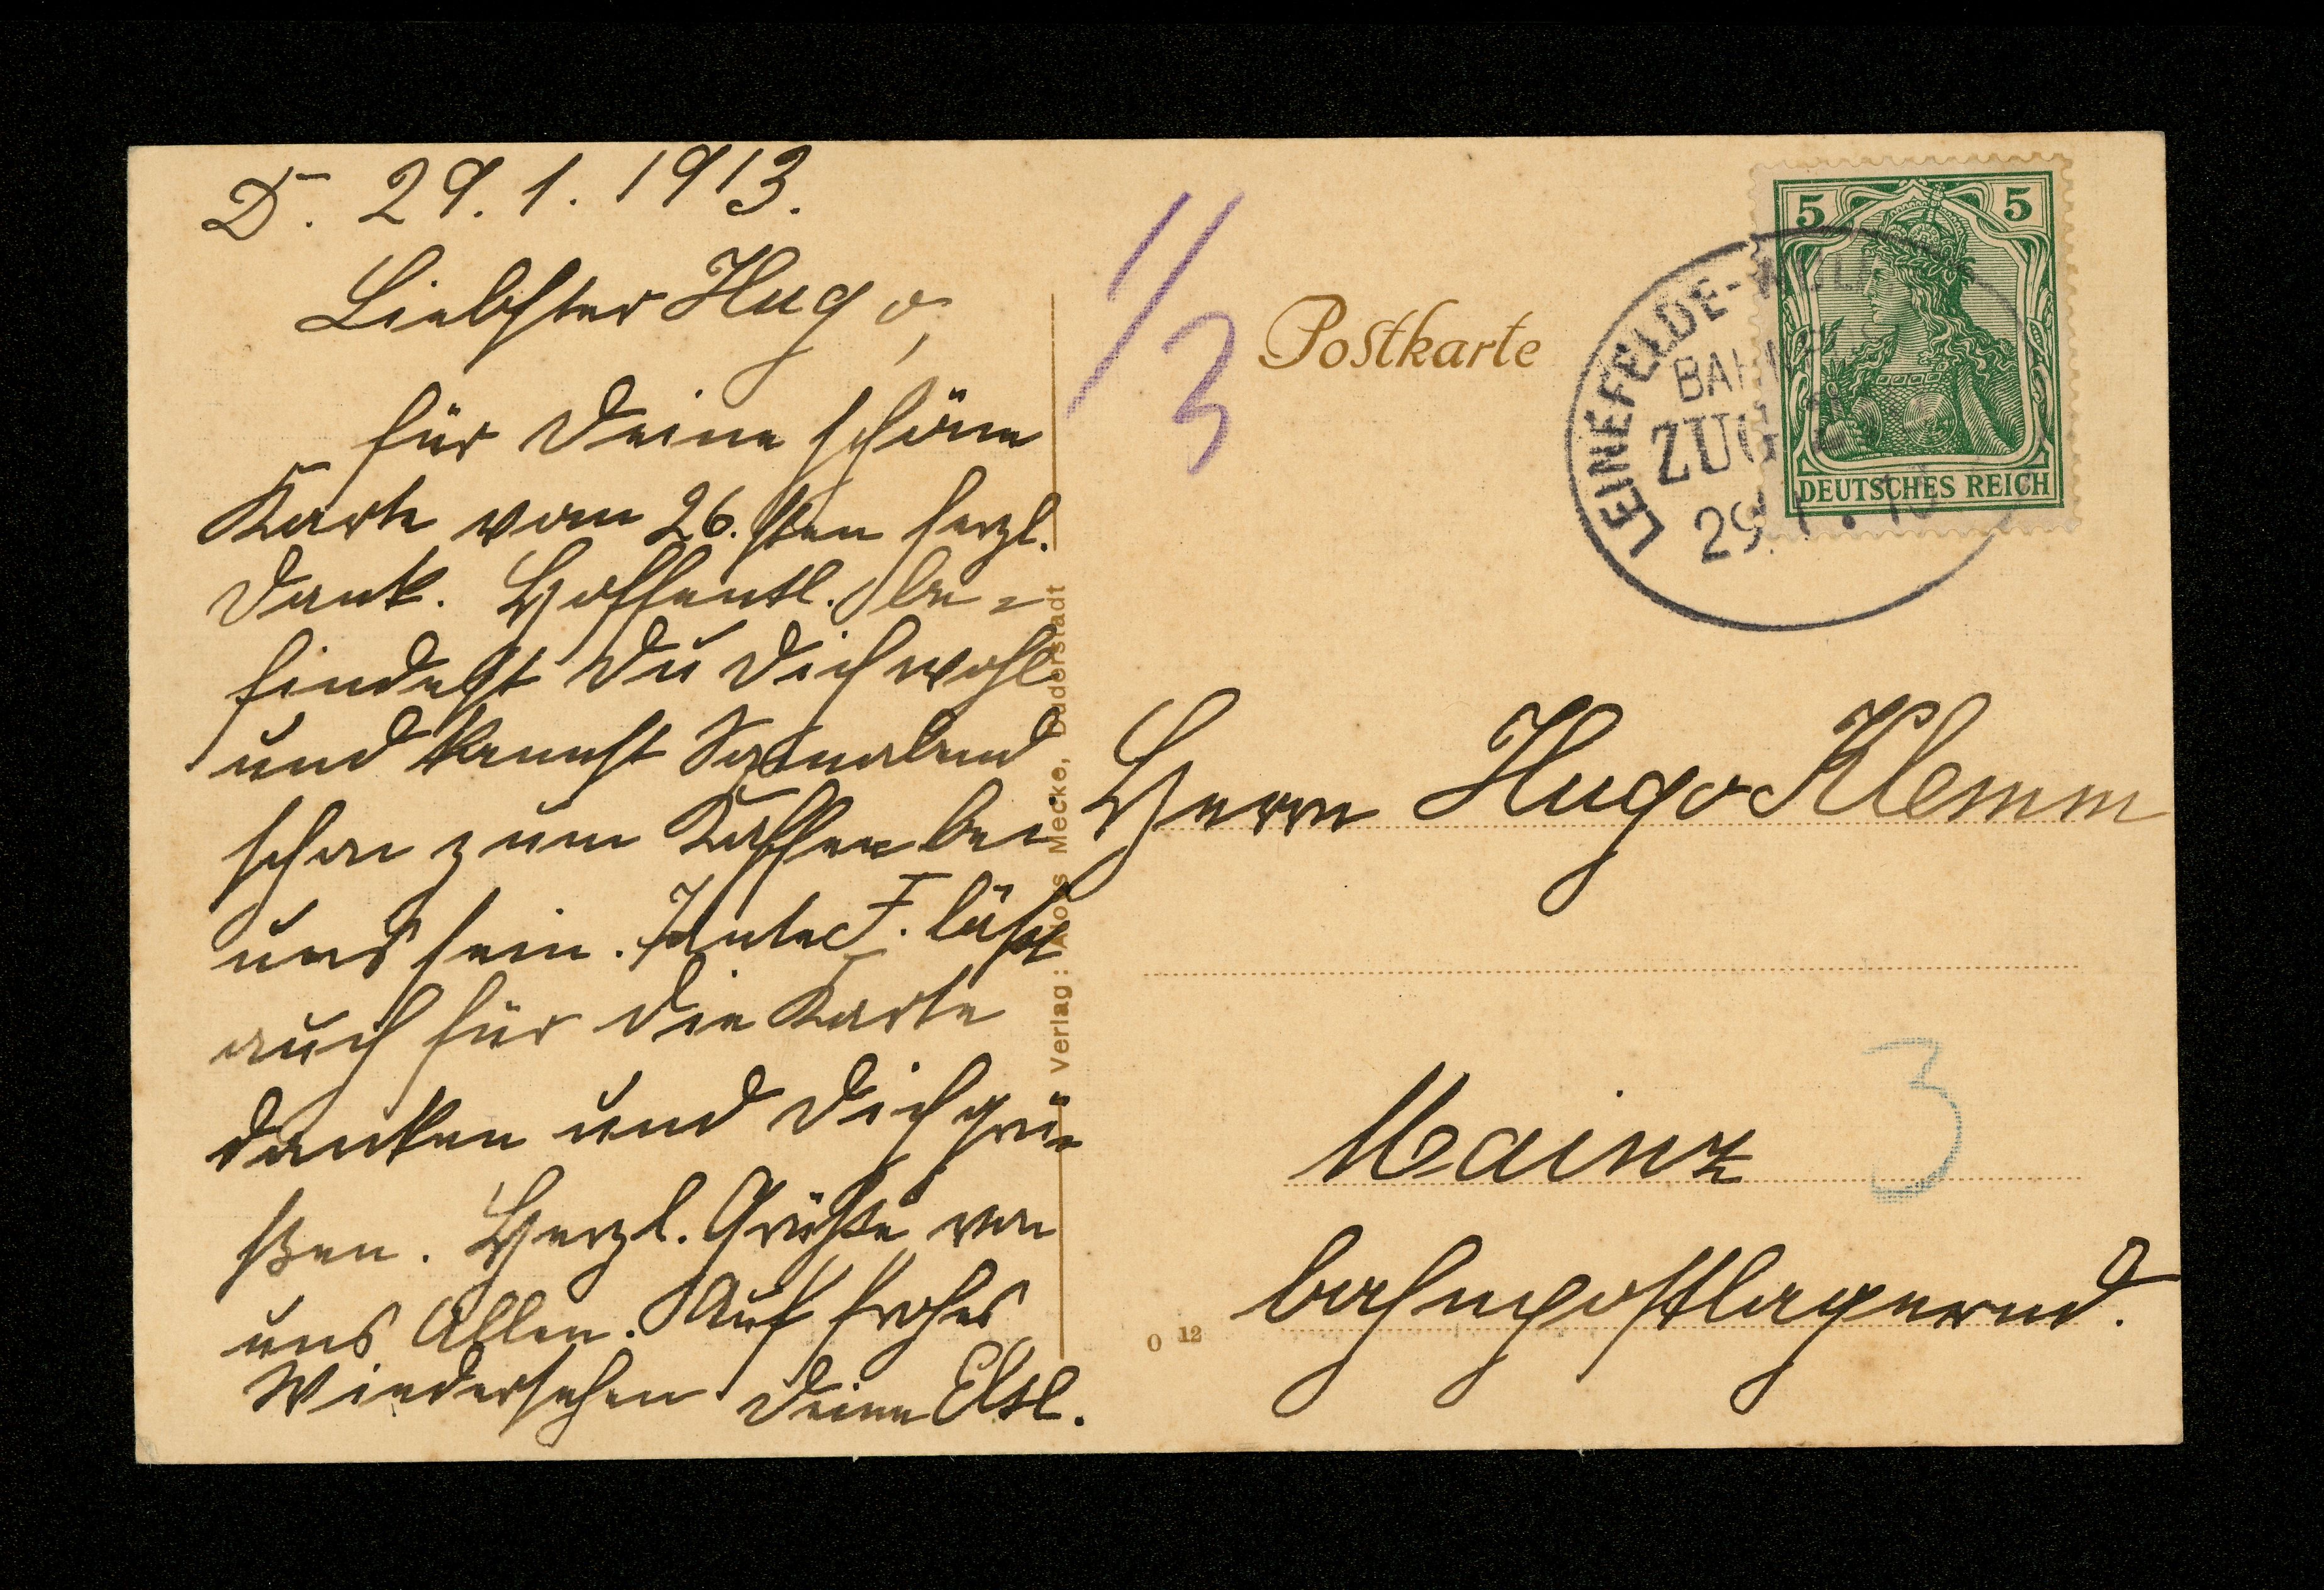 D. 29. 1. 1913.
Liebster Hugo,
für Deine schöne
Karte vom 26.sten herzl.
Dank. Hoffentl. be=
findest Du Dich wohl
und kannst Sonnabend
schon zum Kaffee bei
uns sein. Tante F. läßt
auch für die Karte
danken und Dich grü=
ßen. Herzl. Grüße von
uns Allen. Auf frohes
Wiedersehen Deine
Verlag: Aloys Mecke, Duderstadt
1/3
Postkarte
5 5
DEUTSCHES REICH
LEINEFELDE-
ZUG
29. 1. 13
Herrn Hugo Klemm
Mainz
3
bahnpostlagernd.
0 12